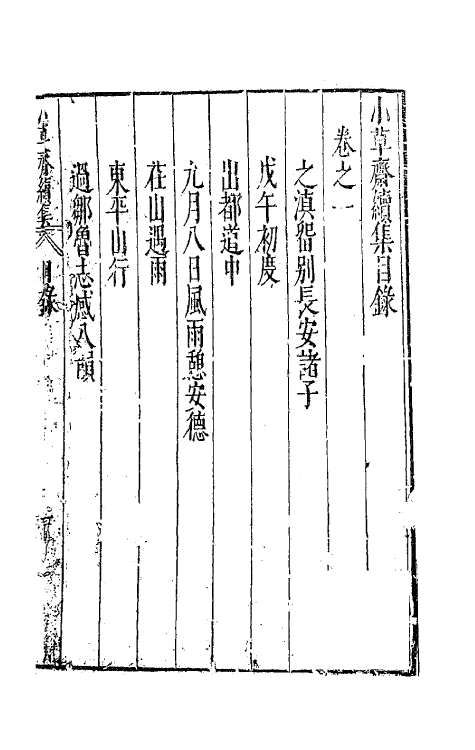 小草齋續集目錄
卷之一
之滇留别長安諸子
戊午初度
出都道中
九月八日風雨憩安德
茌山遇雨
東平山行
過鄒魯志感八韻
小草齋續集 目錄